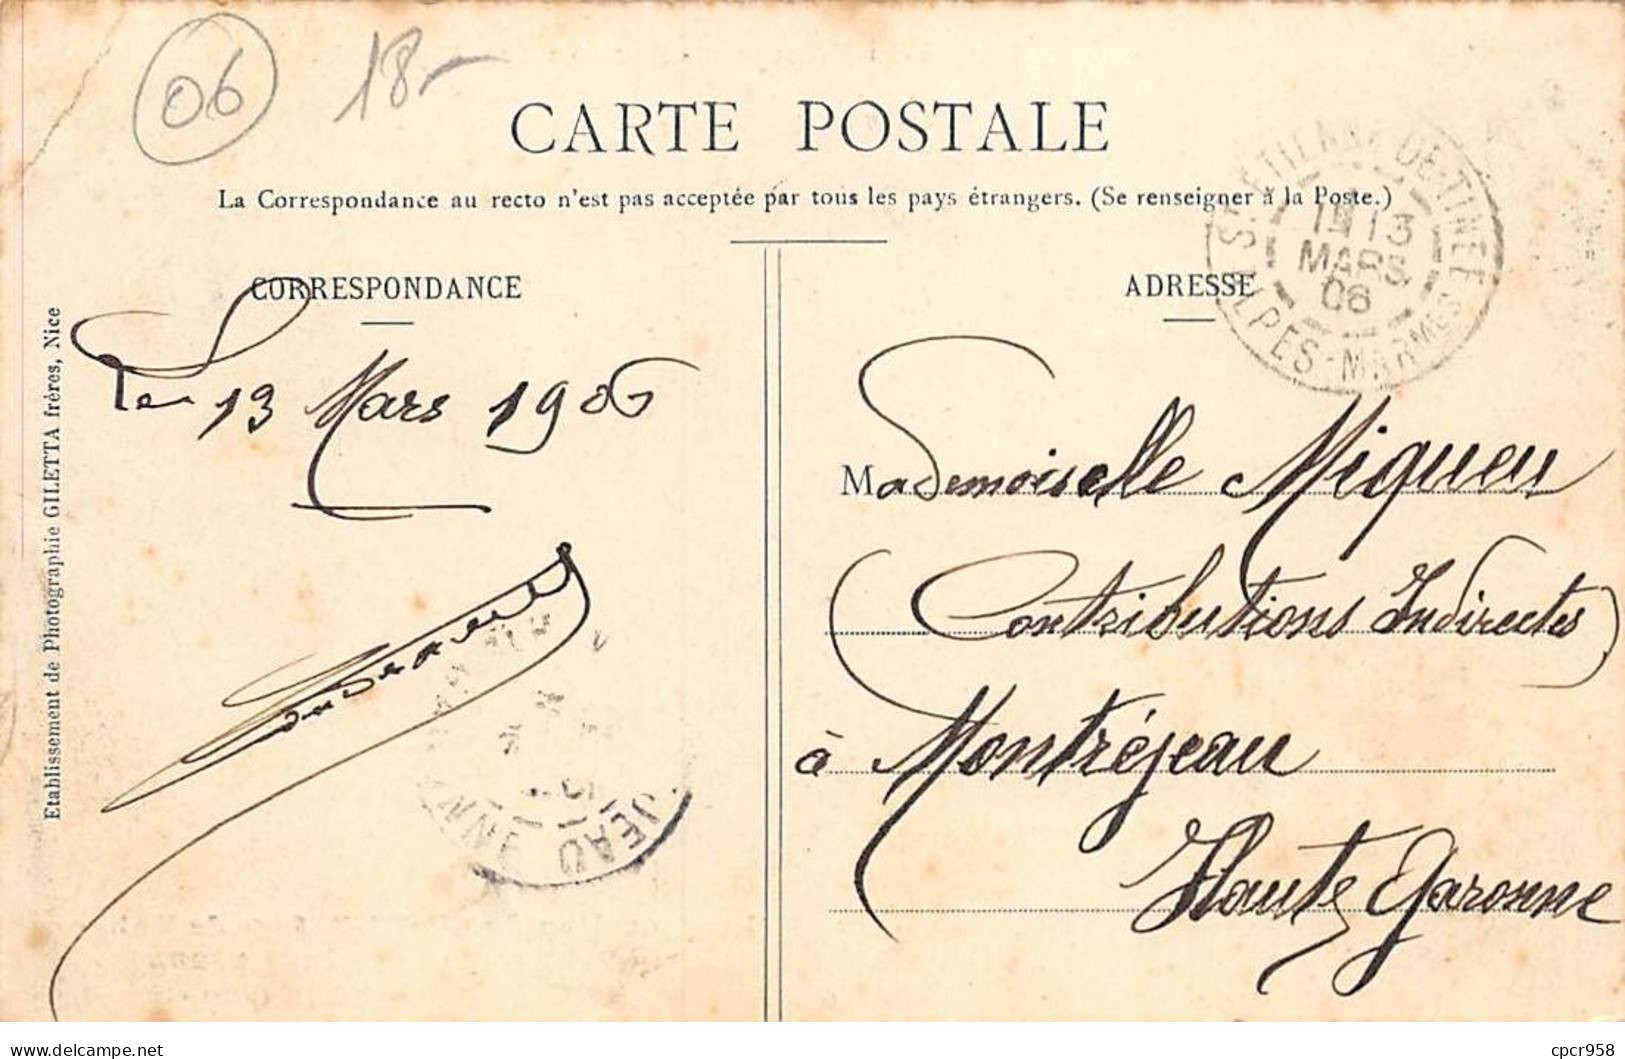 06
18-
CARTE POSTALE
La Correspondance au recto n'est pas acceptée par tous les pays étrangers. (Se renseigner à la Poste.)
ST ETIENNE-DE-TINÉE
13
MARS
06
ALPES-MARMES
CORRESPONDANCE
Le 13 Mars 1906
JEAU
NNE
Etablissement de Photographie GILETTA frères, Nice
ADRESSE
Mademoiselle Miqueu
(Contributions Indirectes)
à Montréjeau
Haute Garonne
delcampe.net
cpcr958